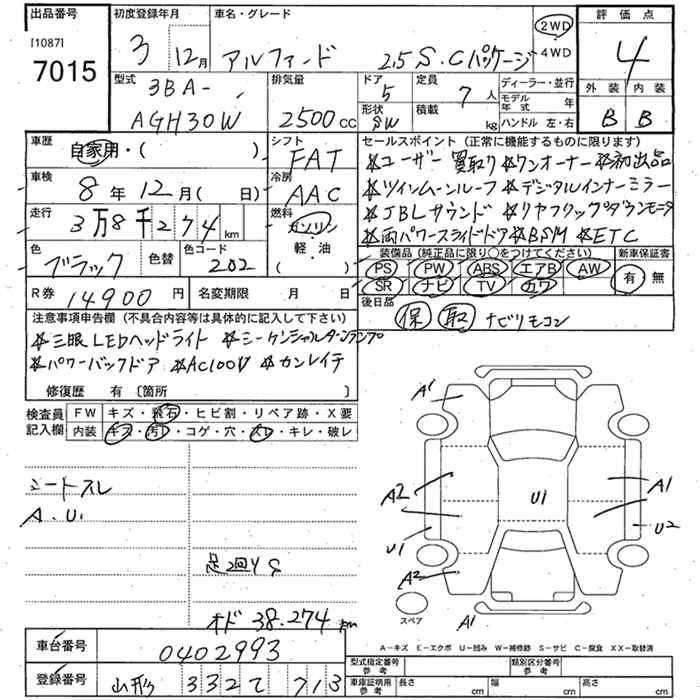 出品番号
[1087]
7015
初度登録年月
3 12月
車名・グレード
アルファード 2.5 S・Cパッケージ
2WD
4WD
評価点
4
外装 内装
B B
型式
3BA-
AGH30W
排気量
2500cc
ドア 5
定員 7人
形状 SW
積載 kg
ディーラー・並行
モデル年式 年
ハンドル 左・右
車歴 自家用・( )
シフト FAT
車検 8年 12月( 日)
冷房 AAC
走行 3万8千274km
燃料 ガソリン
軽・油
( )
色 ブラック
色替
色コード 202
R券 14900円
名変期限 月 日
セールスポイント(正常に機能するものに限ります)
☆ユーザー買取り☆ワンオーナー☆初出品
☆ツインムーンルーフ☆デジタルインナーミラー
☆JBLサウンド☆リヤフリップダウンモニタ
☆両パワースライドドア☆BSM☆ETC
装備品(純正品に限り○をつけてください)
PS PW ABS エアB AW
SR ナビ TV カワ
新車保証書
有 無
後日品
保 取 ナビリモコン
注意事項申告欄(不具合内容等は具体的に記入して下さい)
☆三眼LEDヘッドライト ☆シーケンシャルターンランプ
☆パワーバックドア ☆AC100V ☆カンレイチ
修復歴 有〔箇所 〕
検査員記入欄
FW キズ・飛石・ヒビ割・リペア跡・X要
内装 キズ・汚レ・コゲ・穴・スレ・キレ・破レ
シートスレ
A.U.
足回りS
オド 38.274km
A1
A2
U1
A2
U1
A1
U2
A1
スペア
A-キズ E-エクボ U-凹み W-補修跡 S-サビ C-腐食 XX-取替済
車台番号 0402993
登録番号 山形 332 て 713
型式指定番号 参考
類別区分番号 参考
車庫証明用 参考
長さ cm 幅 cm 高さ cm